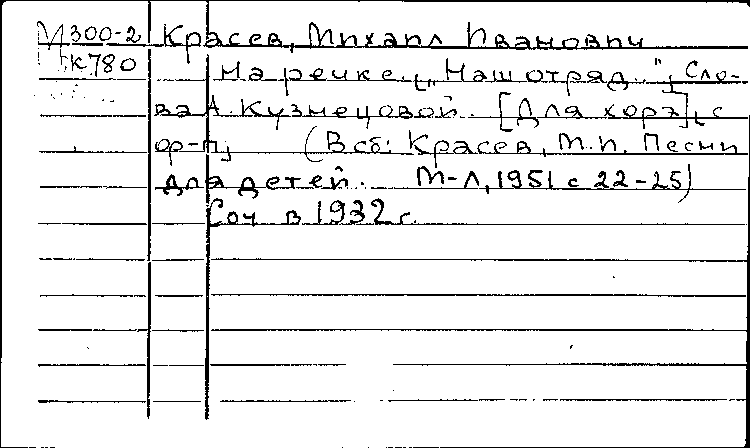 М300-2 Красев, Михаил Иванович
К780 На речке. [„Наш отряд.."] Сло-
ва А. Кузнецовой. [Для хора], с
ор-п, (В сб: Красев, М.И. Песни
для детей. М-Л, 1951 с 22-25)
Соч в 1932 г.